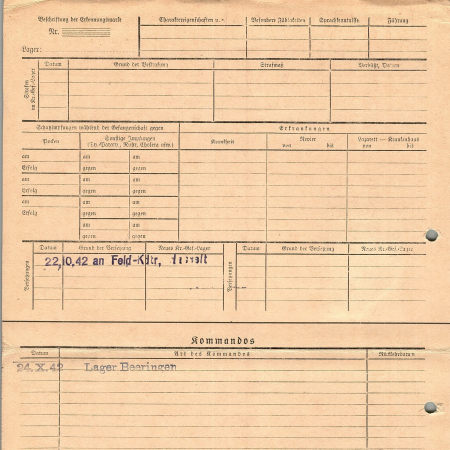 Beschriftung der Erkennungsmarke
Nr.
Lager:
Charaktereigenschaften
Besondere Fähigkeiten
Sprachkenntnisse
Führung
Strafen im Kr.-Gef.-Lager
Datum
Grund der Bestrafung
Strafmaß
Verbüßt, Datum
Schutzimpfungen während der Gefangenschaft gegen
Erkrankungen
Pocken
Sonstige Impfungen
(Ty.-Paraty., Ruhr, Cholera usw.)
Krankheit
Revier
von bis
Lazarett — Krankenhaus
von bis
am am am
Erfolg gegen gegen
am am am
Erfolg gegen gegen
am am am
Erfolg gegen gegen
am am
gegen gegen
am am
gegen gegen
Versetzungen
Datum
Grund der Versetzung
Neues Kr.-Gef.-Lager
Versetzungen
Datum
Grund der Versetzung
Neues Kr.-Gef.-Lager
22.10.42 an Feld-Kdtr,
Kommandos
Datum
Art des Kommandos
Rückkehrdatum
24. X. 42 Lager Bearingen